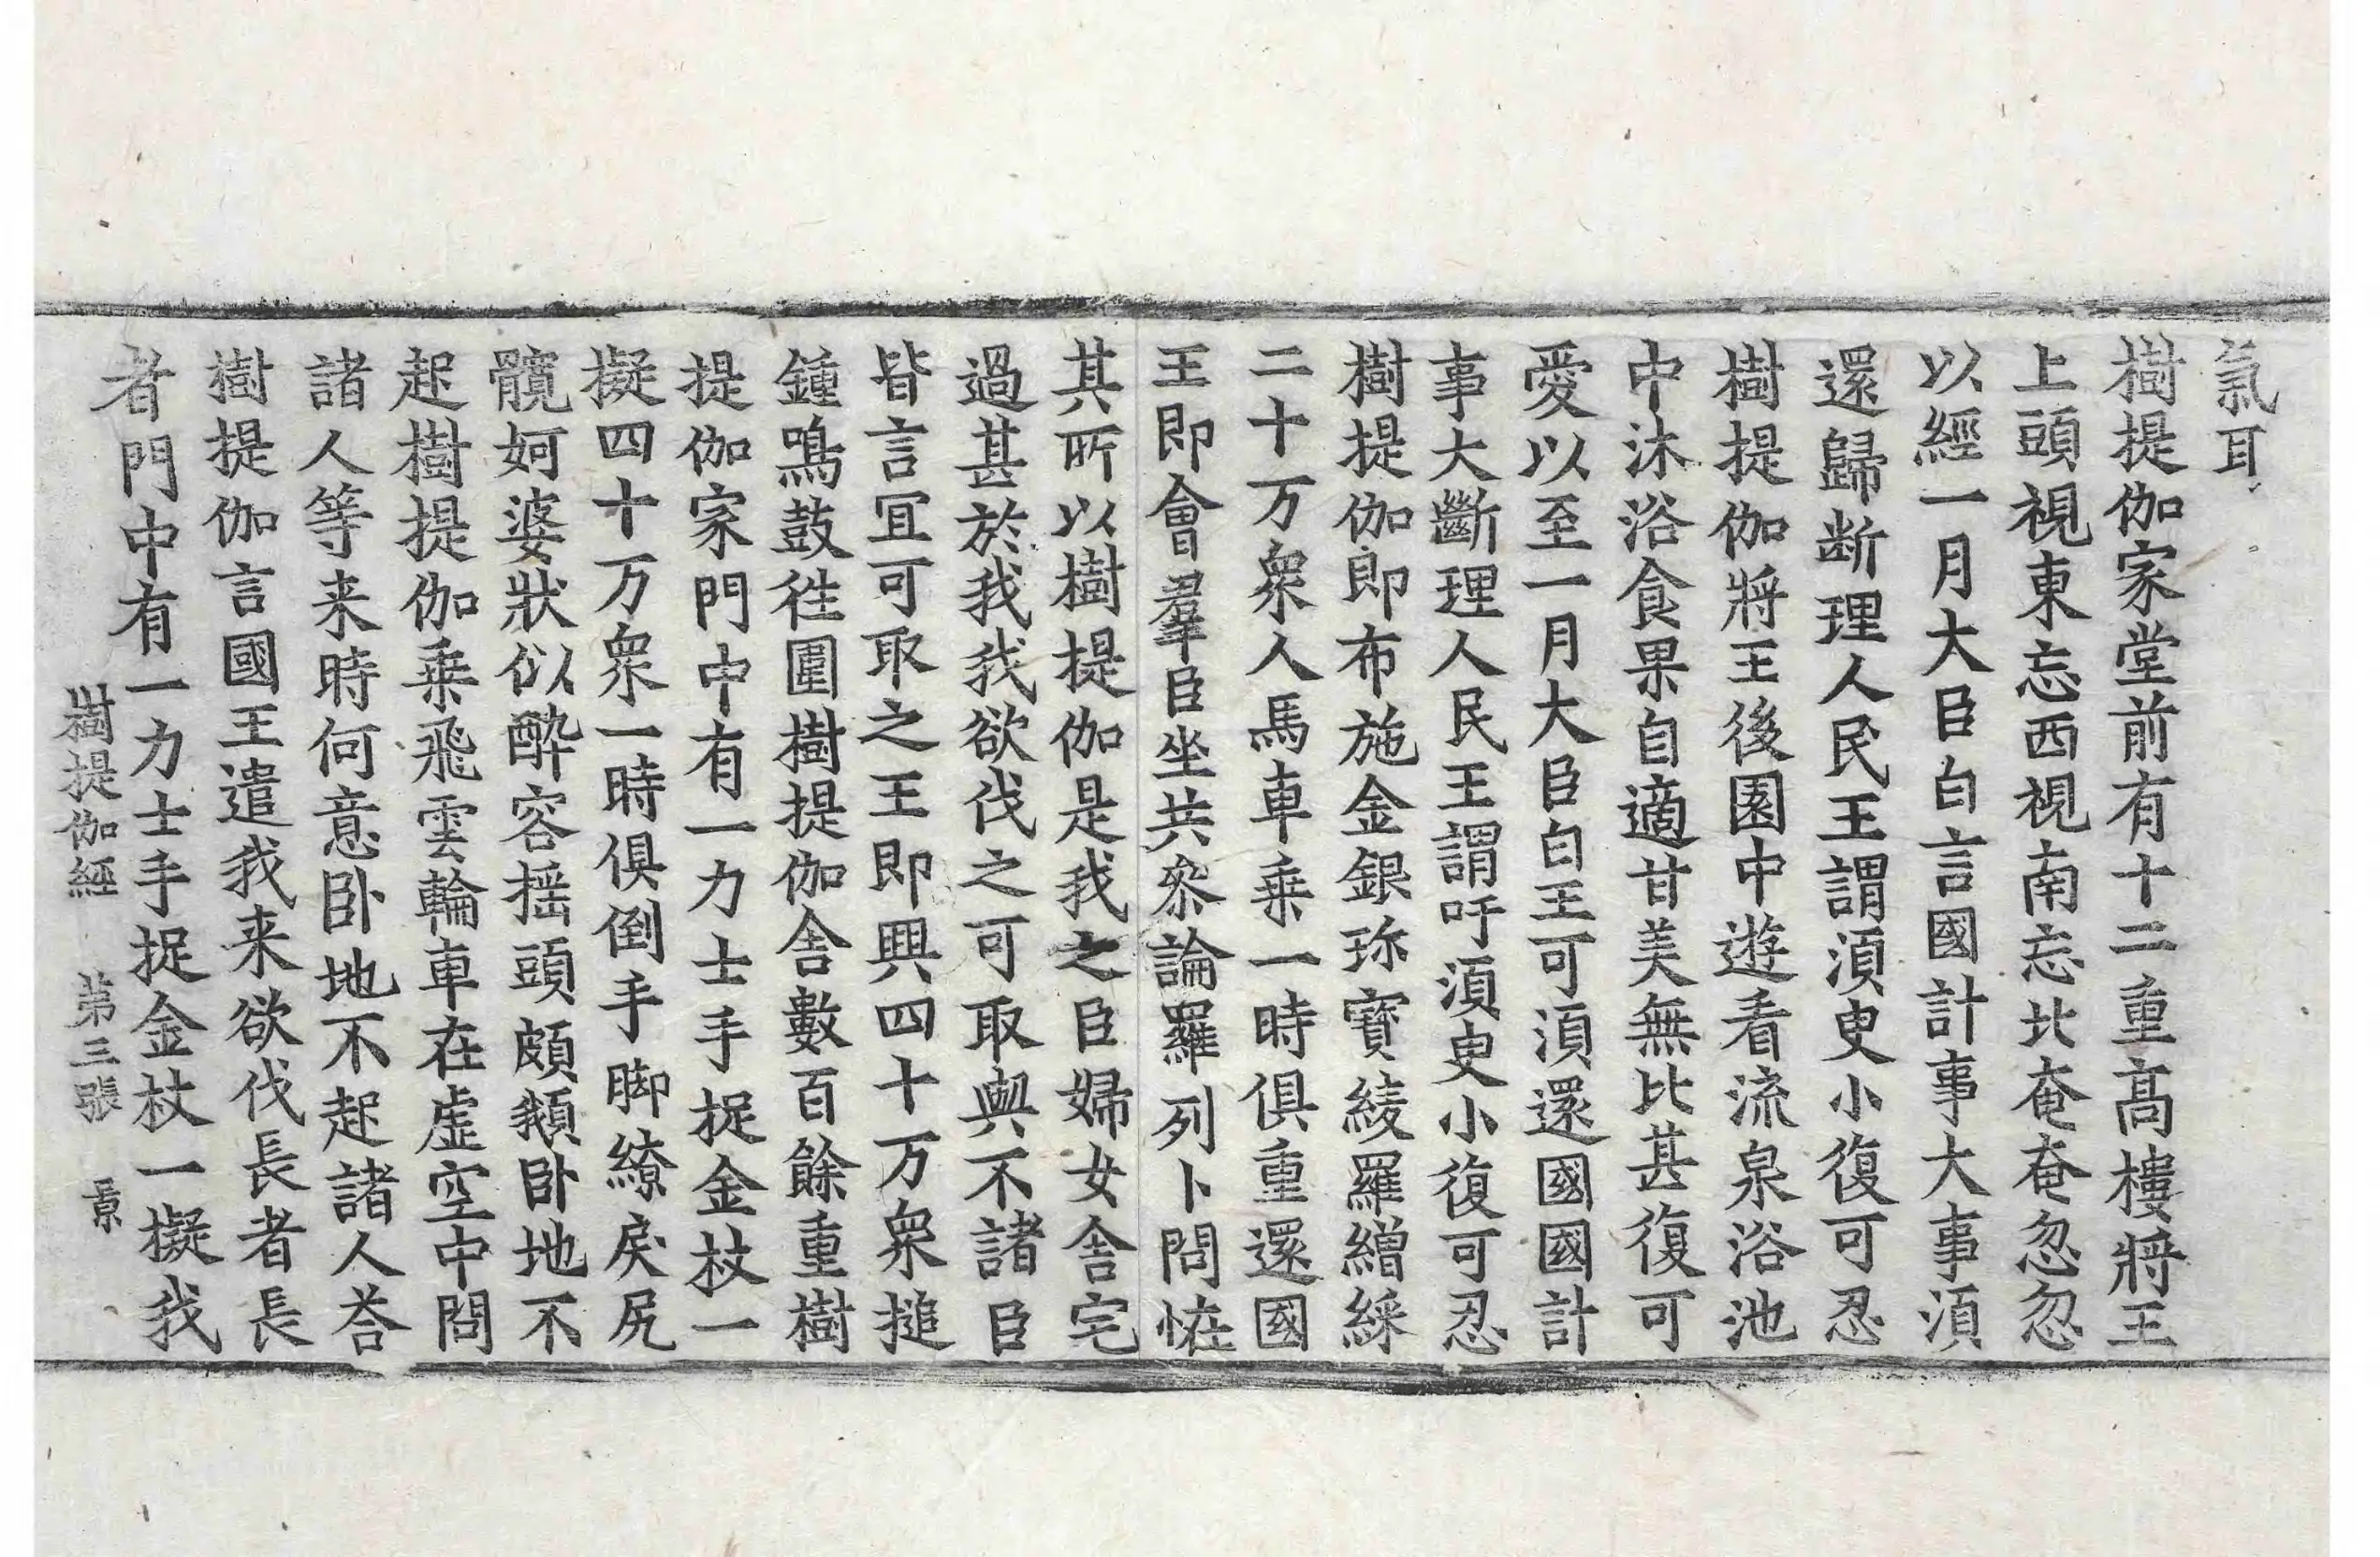 氣耳
樹提伽家堂前有十二重髙樓將王
上頭視東忘西視南忘北奄奄忽忽
以經一月大臣白言國計事大事湏
還歸断理人民王謂湏臾小復可忍
樹提伽將王後園中遊看流泉浴池
中沐浴食果自適甘美無比甚復可
愛以至一月大臣白王可湏還國國計
事大斷理人民王謂吁湏臾小復可忍
樹提伽即布施金銀珎寳綾羅繒綵
二十万衆人馬車乗一時俱重還國
王即會羣臣坐共叅論羅列卜問恠
其所以樹提伽是我之臣婦女舎宅
過甚於我我欲伐之可取與不諸臣
皆言冝可取之王即興四十万衆搥
鍾鳴鼓徃圍樹提伽舎數百餘重樹
提伽家門中有一力士手捉金杖一
擬四十万衆一時俱倒手脚繚戾尻
髖妸婆狀似醉容揺頭頗頟卧地不
起樹提伽乗飛雲輪車在虚空中問
諸人等来時何意卧地不起諸人荅
樹提伽言國王遣我来欲伐長者長
者門中有一力士手捉金杖一擬我
樹提伽經 第三張 景